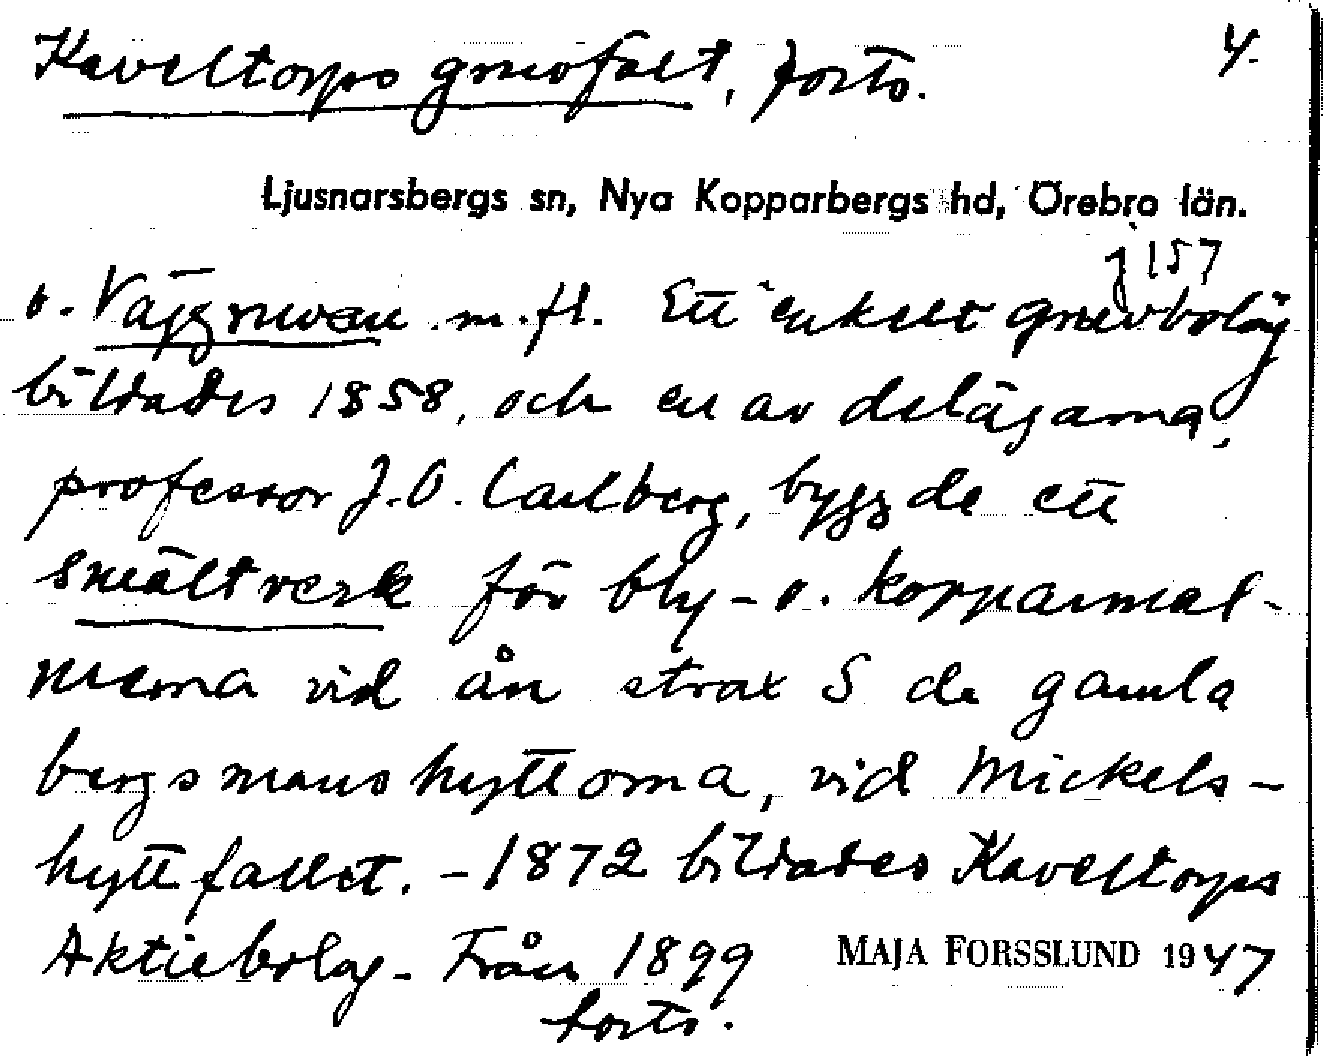 Kaveltorps gruvfält, forts. 4.
Ljusnarsbergs sn, Nya Kopparbergs hd, Örebro län.
j 157
o. Väggruvan m.fl. Ett enkelt gruvbolag
bildades 1858, och en av delägarna,
professor J.O. Carlberg, byggde ett
smältverk för bly- o. kopparmal-
merna vid ån strax S de gamla
bergsmanshyttorna, vid Mickels-
hyttfallet. - 1872 bildades Kaveltorps
Aktiebolag - Från 1899 MAJA FORSSLUND 1947
forts.